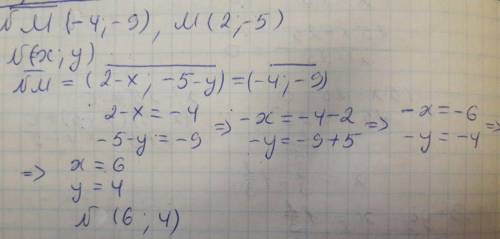 N̅M̅ (-4; -9), M (2; -5)
N(x; y)
N̅M̅ = (2-x; -5-y) = (-4; -9)
2-x = -4 => -x = -4-2 => -x = -6
-5-y = -9 -y = -9+5 -y = -4 =>
=> x = 6
y = 4
N (6; 4)